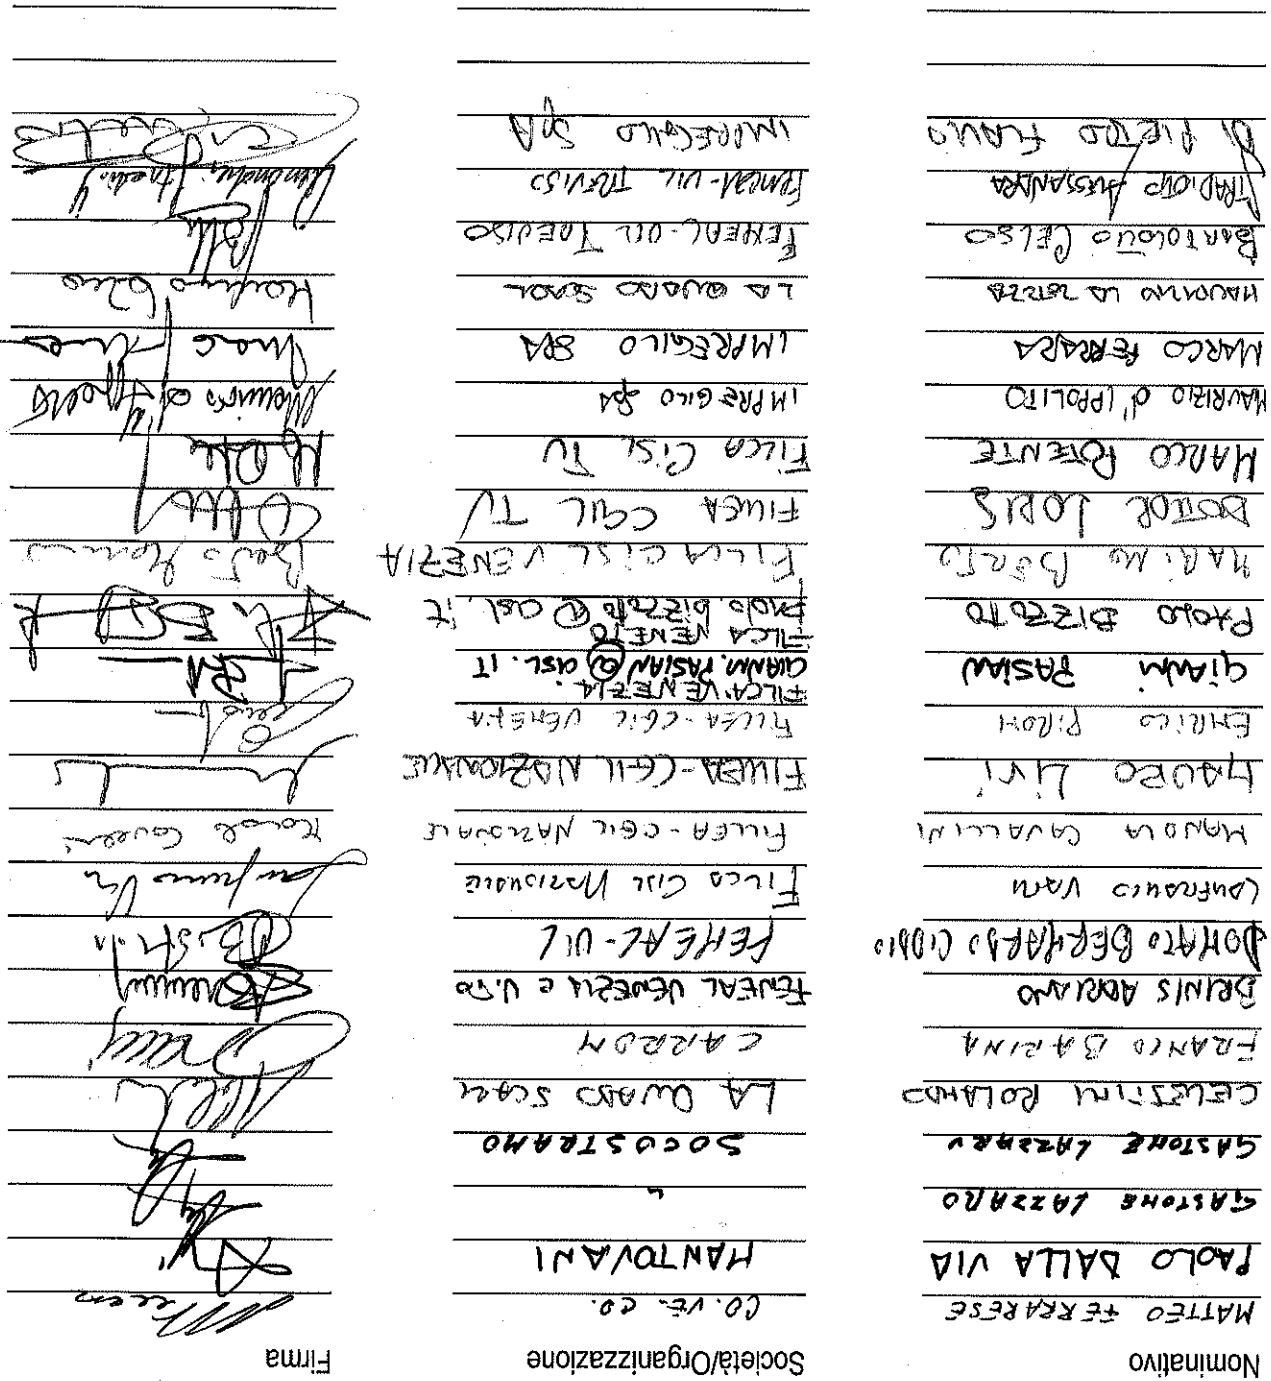 Nominativo Società/Organizzazione Firma
MATTEO FERRARESE CO.VE.CO.
PAOLO DALLA VIA MANTOVANI
GASTONE LAZZARO "
GASTONE LAZZARO SOCOSTRAMO
CELESTINI ROLANDO LA QUADO SCARL
FRANCO BARINA CARRON
BRINIS ADRIANO FENEAL VENEZIA e U.SO
DONATO BERNARDO CIDDIO FENEAL-UIL
LANFRANCO VARI FILCA CISL NAZIONALE Lanfranco Vari
MANOLA CAVALLINI FILLEA-CGIL NAZIONALE
MAURO LIVI FILLEA-CGIL NAZIONALE
ENRICO PIRON FILLEA-CGIL VENEZIA
FILCA VENEZIA.
GIANNI PASIAN GIANNI.PASIAN@CISL.IT
FILCA VENETO
PAOLO BIZZOTO PAOLO.BIZZOTO@CISL.IT
MARINO BERTO FILCA CISL VENEZIA Berto Marino
DOTTOR LORIS FILLEA CGIL TV
MARCO POTENTE FILCA CISL TV
MAURIZIO d'IPPOLITO IMPREGILO SPA Maurizio d'Ippolito
MARCO FERRARA IMPREGILO SPA
LA QUADO SCARL
BARTOLOTTO CELSO FENEAL-UIL TREVISO
ALESSANDRA FENEAL-UIL TREVISO
DI PIETRO FLAVIO IMPREGILO SPA